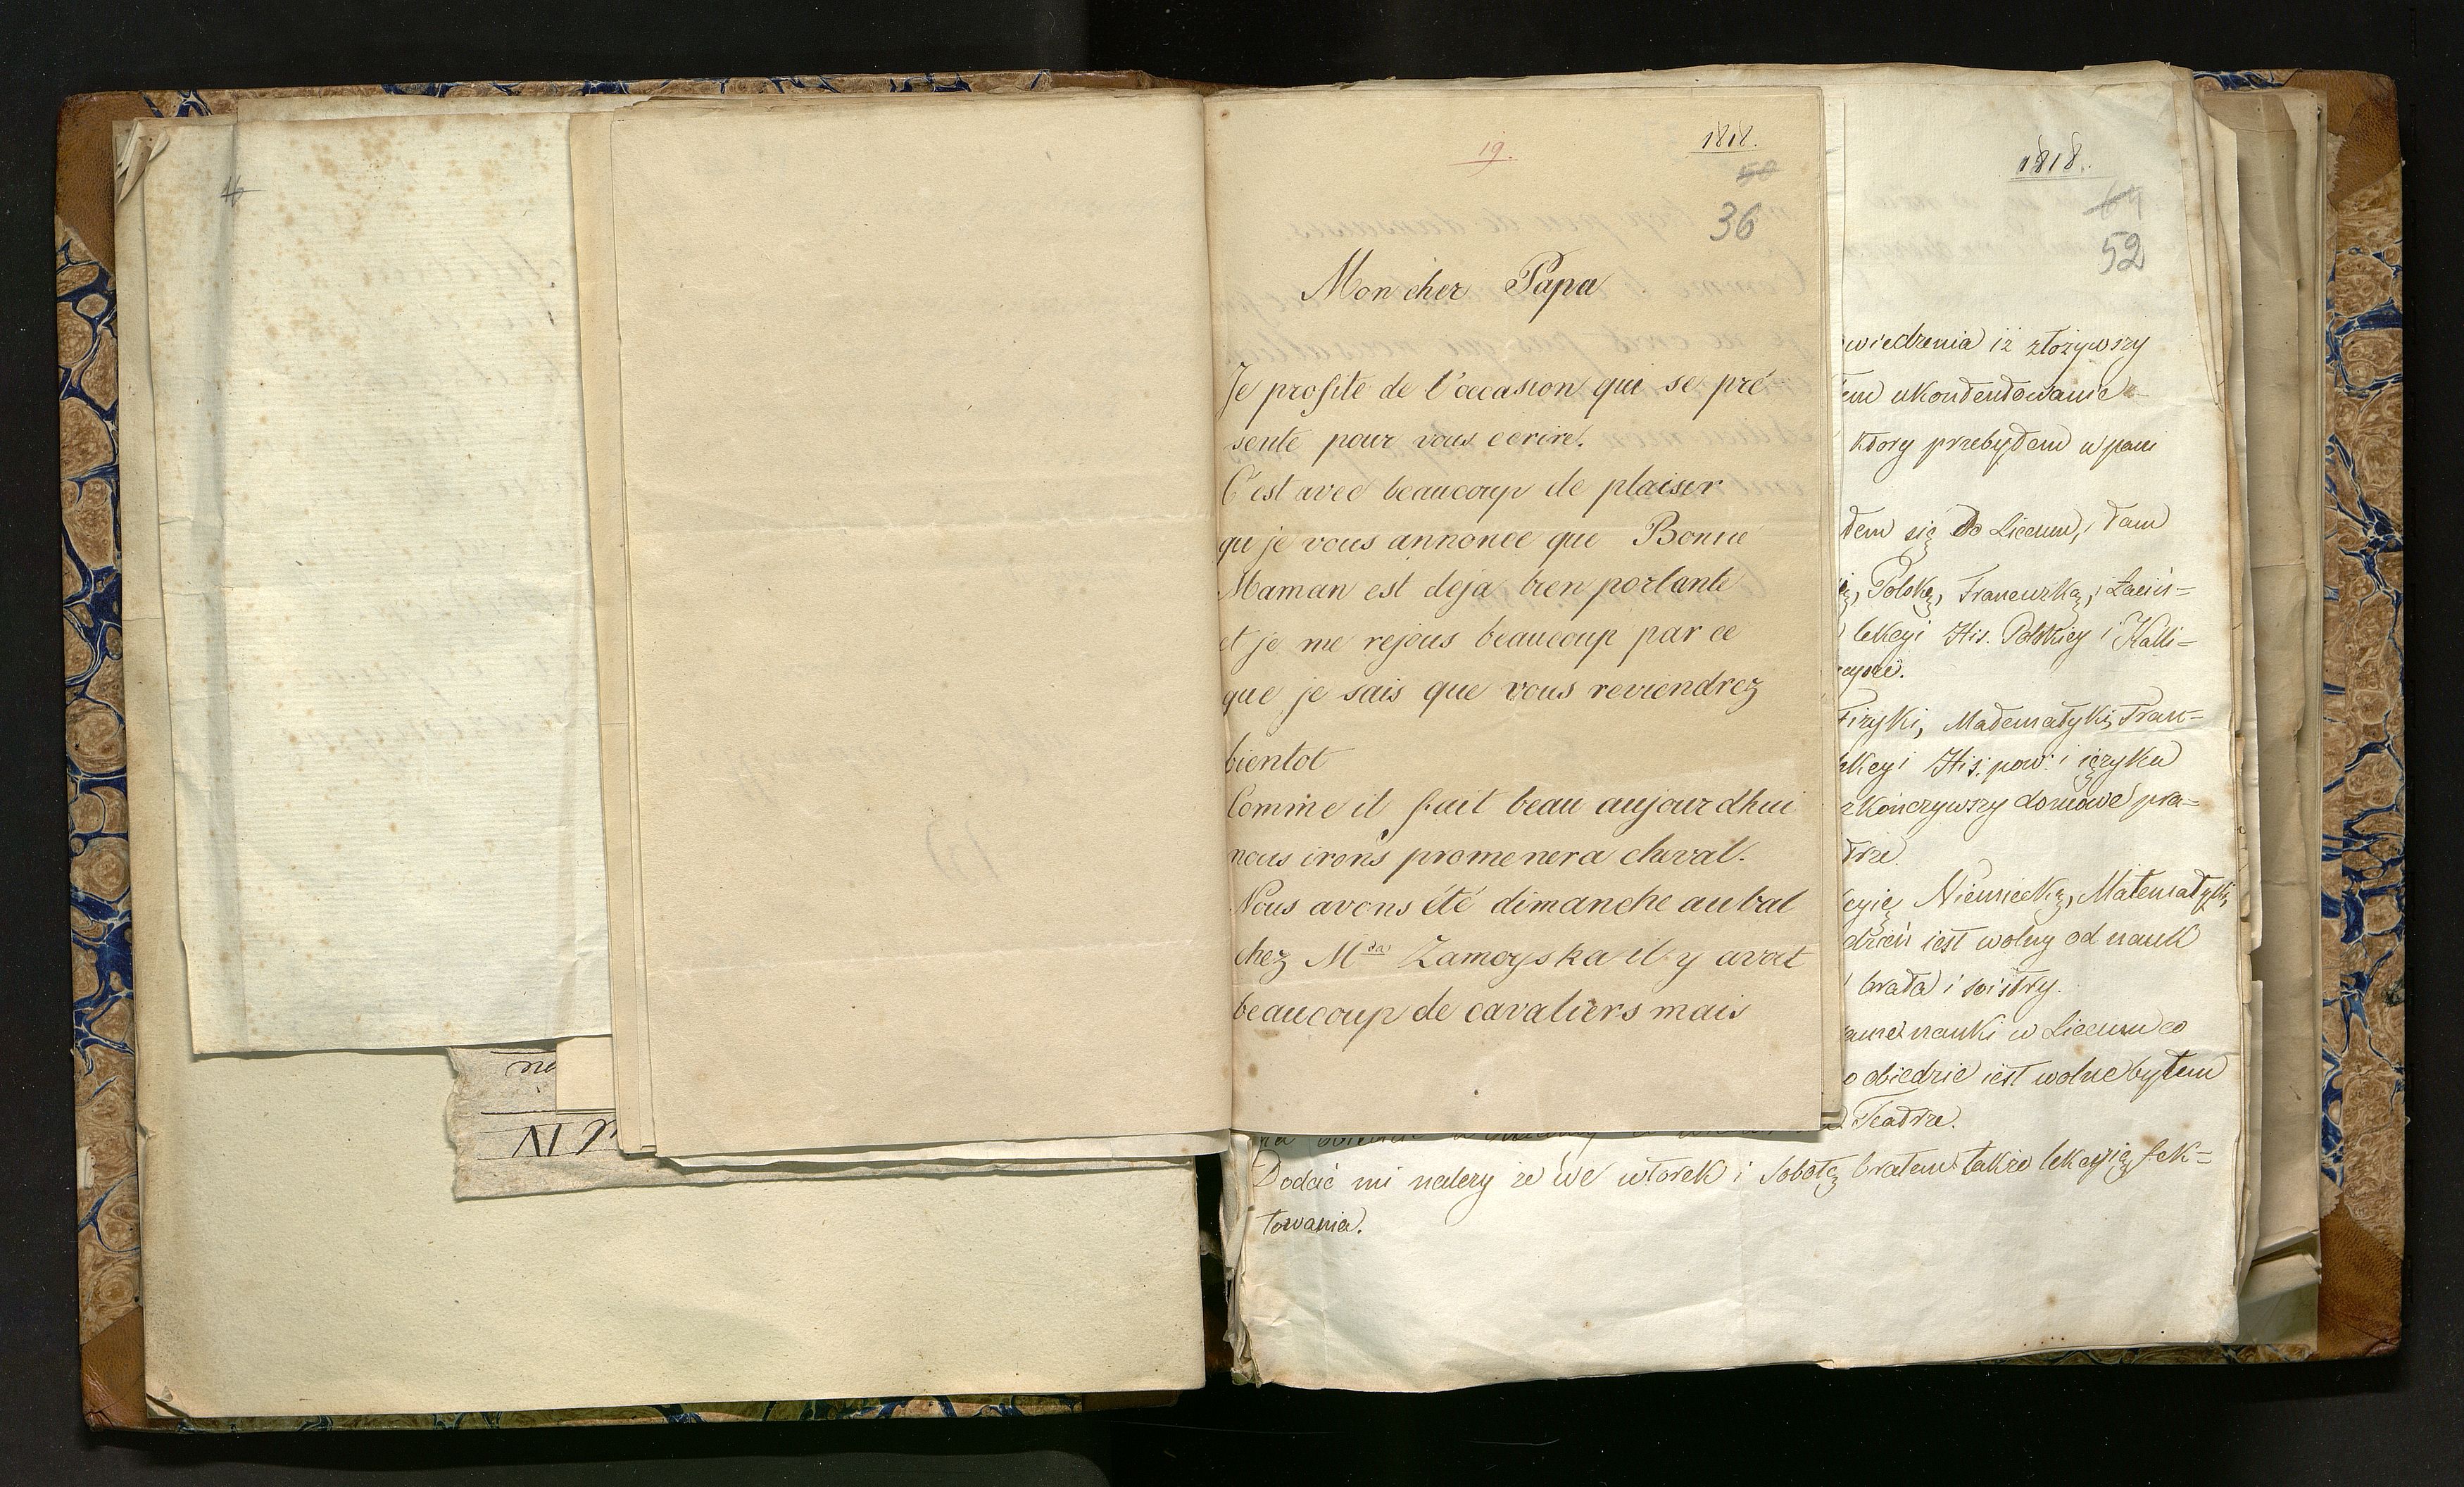 16
19.
1818.
50
36
Mon cher Papa
Je profite de l'occasion qui se pré
sente pour vous ecrire.
C'est avec beaucoup de plaisir
qu je vous annonce que Bonne
Maman est deja bien portante
et je me rejouis beaucoup par ce
que je sais que vous reviendrez
bientot
Comme il fait beau aujourdhui
nous irons promener a cheval.
Nous avons été dimanche au bal
chez Mde Zamoyska il y avat
beaucoup de cavaliers mais
1818.
64
52
wiedzenia iż złożywszy
ukontentowanie
ktory przebyłem w pani
łem się do Liceum, tam
Polską, Francuzką, i Łaciń=
lekcyi His. Polskiey i Kalli=
Fizyki, Matematyki, Fran=
lekcyi His: pow: i ięzyka
zkończywszy domowe pra=
trze.
Niemiecką, Matematyki,
dzień iest wolny od nauk
brata i siostry.
nauki w Liceum co
o obiedzie iest wolne byłem
Teatrze.
Dodać mi należy że we wtorek i Sobotę brałem także lekcyią fek=
towania.